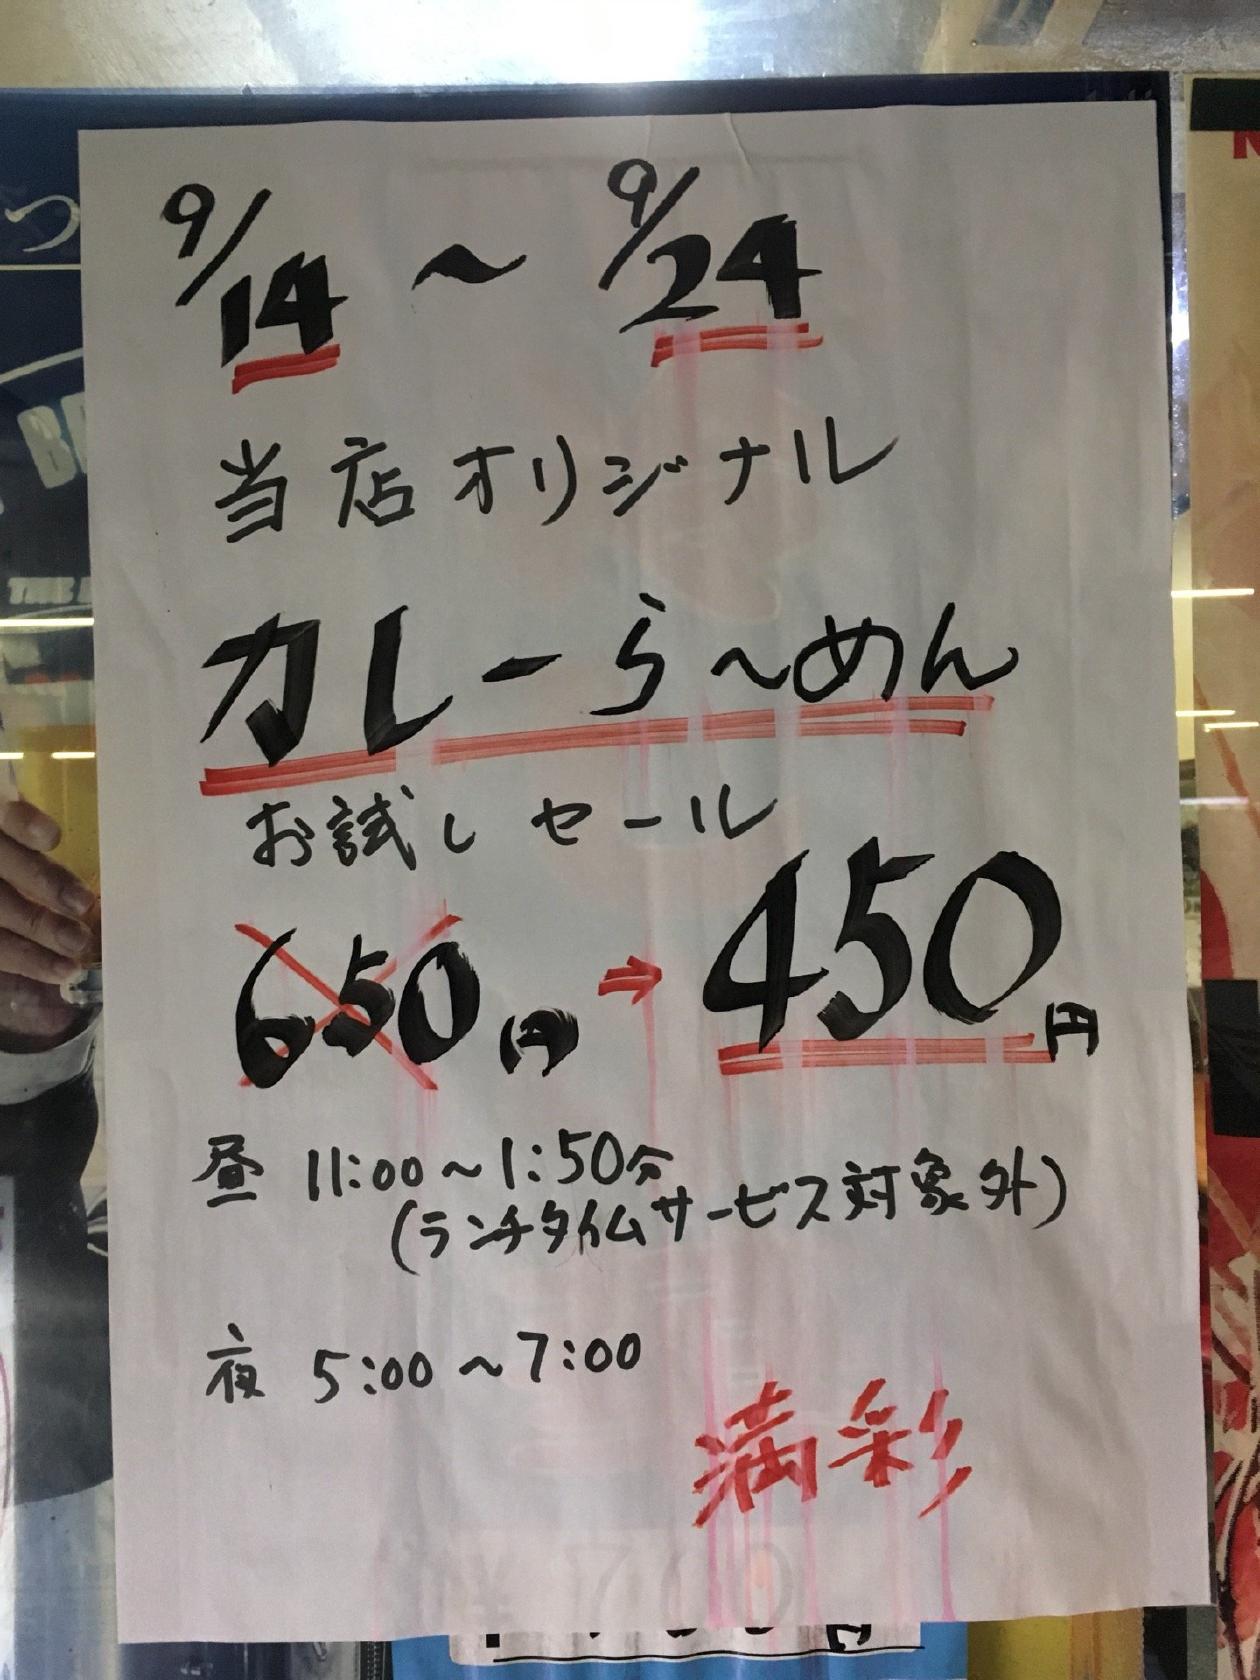 9/14 〜 9/24
当店オリジナル
カレーら〜めん
お試しセール
650円 → 450円
昼 11:00〜1:50分
(ランチタイムサービス対象外)
夜 5:00〜7:00
満彩
¥700